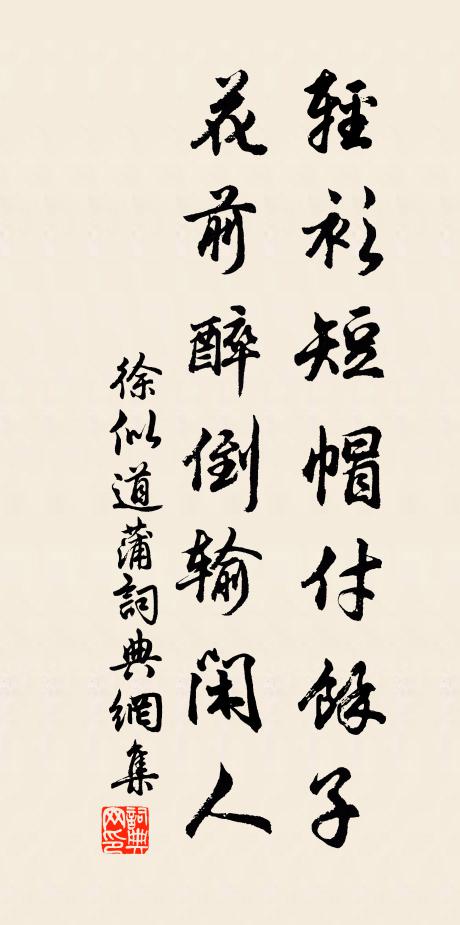 輕衫短帽付餘子
花前醉倒输閑人
徐似道蒲詞典網集
詞典网印